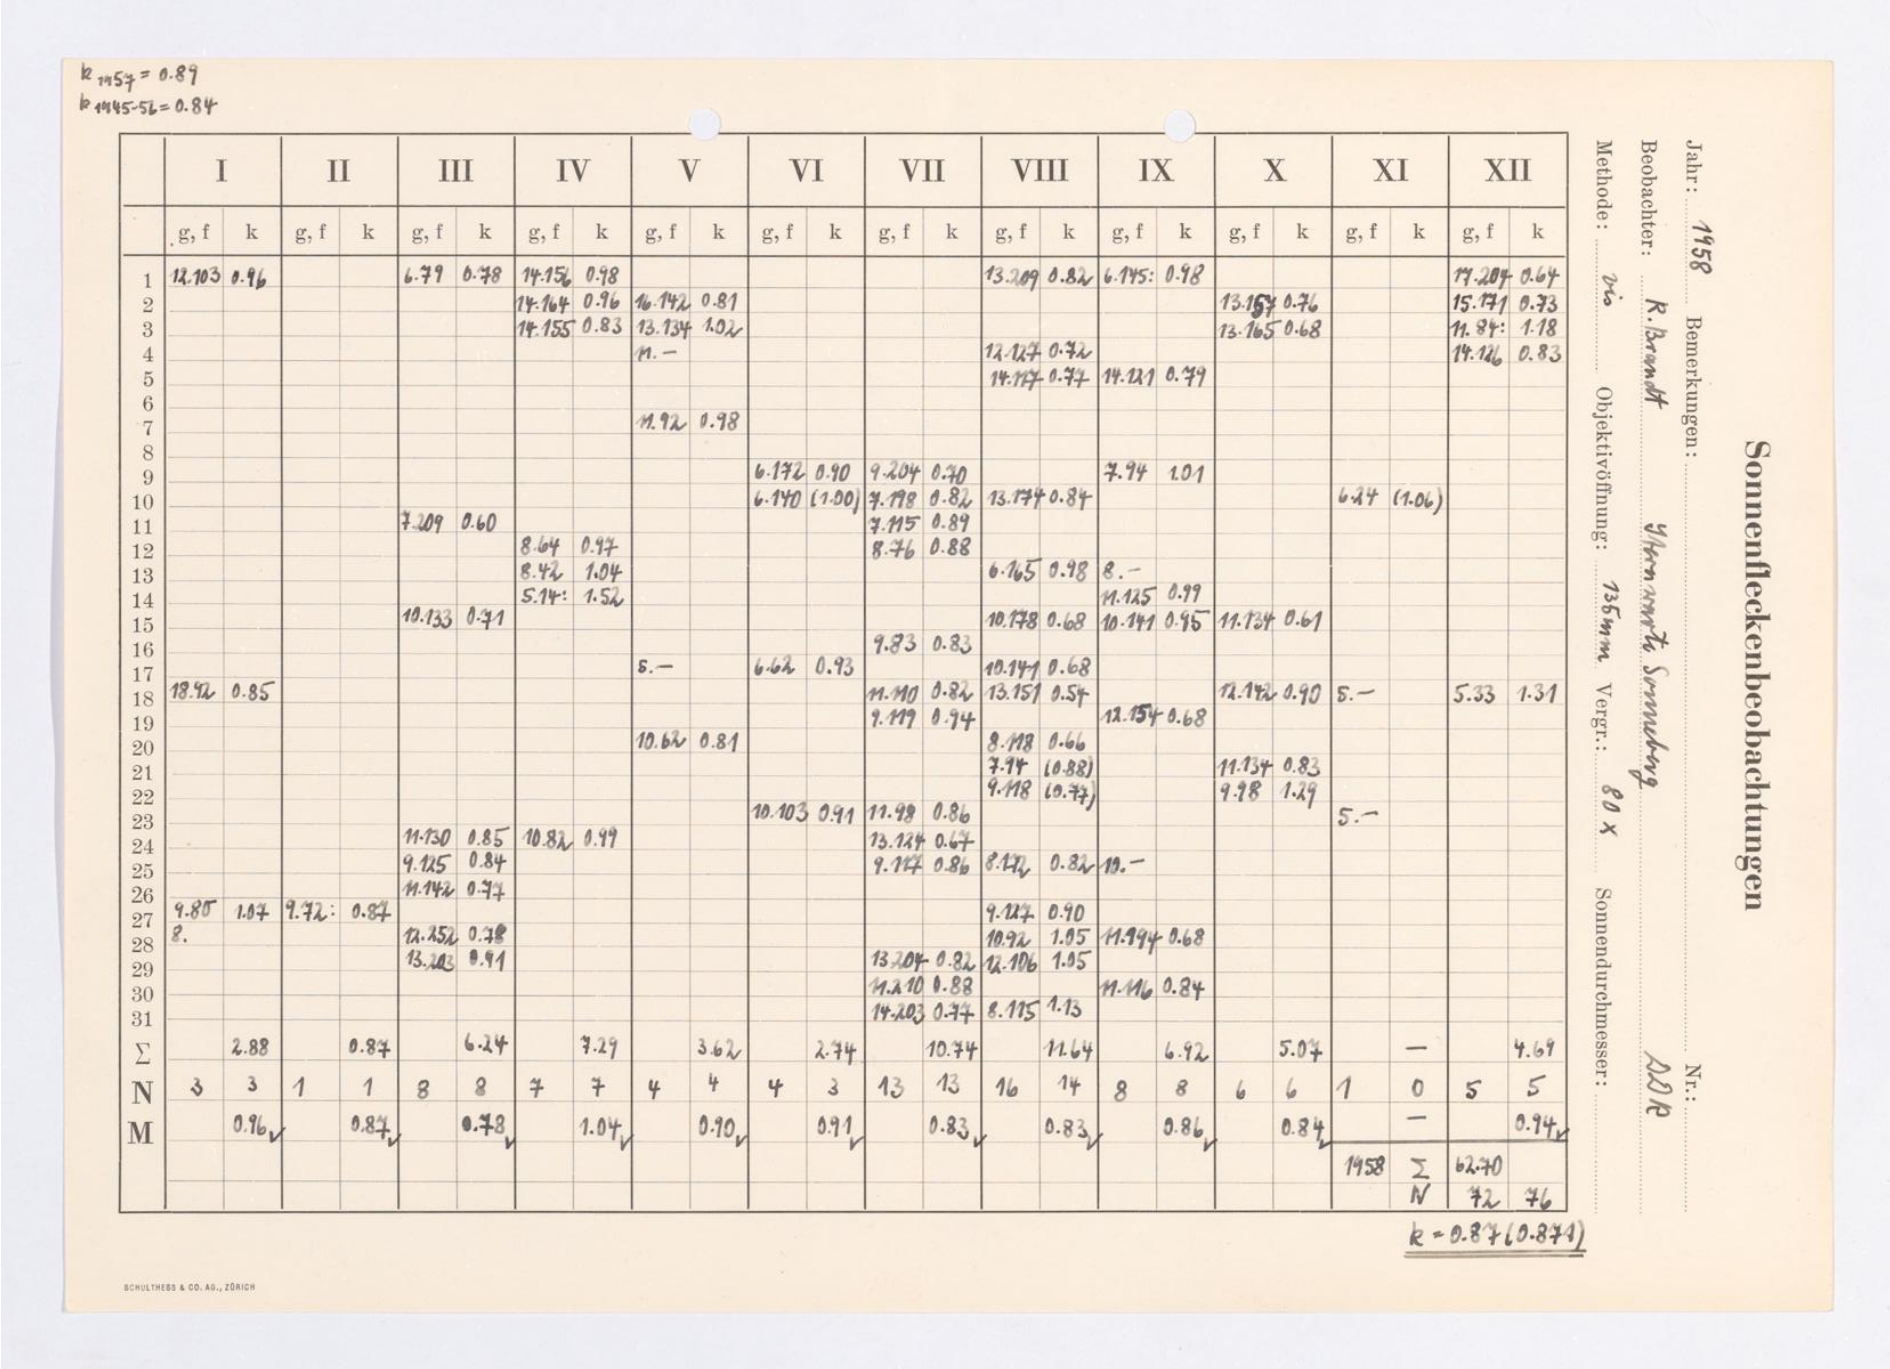 k 1957 = 0.89
k 1945-56 = 0.84
Sonnenfleckenbeobachtungen
Jahr: 1958 Bemerkungen: Nr.:
Beobachter: R. Brandt Sternwarte Sonneberg DDR
Methode: vis Objektivöffnung: 135mm Vergr.: 80 x Sonnendurchmesser:
I II III IV V VI VII VIII IX X XI XII
g, f k g, f k g, f k g, f k g, f k g, f k g, f k g, f k g, f k g, f k g, f k g, f k
1 12.103 0.96 6.79 0.78 14.156 0.98 13.209 0.82 6.145: 0.98 17.204 0.64
2 14.164 0.96 16.142 0.81 13.157 0.76 15.171 0.73
3 14.155 0.83 13.134 1.02 13.165 0.68 11.84: 1.18
4 11.– 12.127 0.72 14.126 0.83
5 14.117 0.77 14.121 0.79
6
7 11.92 0.98
8
9 6.172 0.90 9.204 0.70 7.94 1.01
10 6.140 (1.00) 7.198 0.82 13.174 0.84 6.24 (1.06)
11 7.209 0.60 7.115 0.89
12 8.64 0.97 8.76 0.88
13 8.42 1.04 6.165 0.98 8.–
14 5.14: 1.52 11.125 0.99
15 10.133 0.71 10.178 0.68 10.141 0.95 11.134 0.61
16 9.83 0.83
17 5.– 6.62 0.93 10.141 0.68
18 18.92 0.85 11.110 0.82 13.151 0.54 12.142 0.90 5.– 5.33 1.31
19 9.119 0.94 12.154 0.68
20 10.62 0.81 8.118 0.66
21 7.94 (0.88) 11.134 0.83
22 9.118 (0.77) 9.98 1.29
23 10.103 0.91 11.98 0.86 5.–
24 11.130 0.85 10.82 0.99 13.124 0.67
25 9.125 0.84 9.117 0.86 8.172 0.82 10.–
26 11.142 0.77
27 9.80 1.07 9.72: 0.87 9.127 0.90
28 8. 12.252 0.78 10.92 1.05 11.194 0.68
29 13.203 0.91 13.204 0.82 12.106 1.05
30 11.210 0.88 11.116 0.84
31 14.203 0.77 8.115 1.13
Σ 2.88 0.87 6.24 7.29 3.62 2.74 10.74 11.64 6.92 5.07 – 4.69
N 3 3 1 1 8 8 7 7 4 4 4 3 13 13 16 14 8 8 6 6 1 0 5 5
M 0.96 0.87 0.78 1.04 0.90 0.91 0.83 0.83 0.86 0.84 – 0.94
1958 Σ 62.70
N 72 76
k = 0.87 (0.871)
SCHULTHESS & CO. AG., ZÜRICH